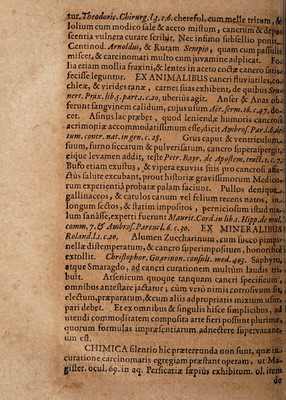 tur. Theodoric. Chirurg. l. 3. c. 6. cherefol, cum melle tritum, &
lolium cum modico sale & aceto mistum, cancrum & depa-
scentia vulnera curare scribit. Nec infimo subsellio ponit
Centinod. Arnoldus, & Rutam Senpio, quam cum passulis
miscet, & carcinomati multo cum juvamine adplicat. Fo-
lia etiam mollia fraxini, & lentes in aceto coctæ cancro satis
fecisse leguntur. EX ANIMALIBUS cancri fluviatiles, co-
chleæ, & virides ranæ, carnes suas exhibent, de quibus Sen-
nert. Prax. lib. 5. part. 1. c. 20. uberius agit. Anser & Anas ob-
ferunt sangvinem calidum, cujus usum Aët. serm. 16. c. 47. do-
cet. Asinus lac præbet, quod leniendæ humoris cancrosi
acrimoniæ accommodatissimum esse, dicit Ambros. Par. l. de
tum. contr. nat. in gen. c. 28. Grus caput & ventriculum
suum, furno siccatum & pulverisatum, cancro superaspergit,
eique levamen addit, teste Petr. Bayr. de Apostem. tract. 1. c. 7.
Bufo etiam exustus, & vipera exuviis suis pro cancrosi affe-
ctus salute excubant, prout historiæ gravissimorum Medico-
rum experientiâ probatæ palam faciunt. Pullos denique
gallinaceos, & catulos canum vel felium recens natos, in
longum sectos, & statim impositos, perniciosum istud ma-
lum sanâsse, experti fuerunt Mauric. Cord. in lib. 1. Hipp. de mul.
comm. 7. & Ambros. Paræus l. 6. c. 30. EX MINERALIBUS
Roland. l. 2. c. 20, Alumen Zuccharinum, cum succo pimpi-
nellæ distemperatum, & cancro superimpositum, honorificè
extollit. Christophor. Guarinon. consult. med. 403. Saphyro,
atque Smaragdo, ad cancri curationem multùm laudis tri-
buit. Arsenicum quoque tanquam cancri specificum,
omnibus antestare jactatur; cùm verò nimis corrosivum sit,
electum, præparatum, & cum aliis adpropriatis mixtum usur-
pari debet. Et ex omnibus & singulis hisce simplicibus, ad
utendi commoditatem composita arte fieri possunt plurima,
quorum formulas impræsentiarum adnectere supervacane-
um est.
CHIMICA silentio hic prætereunda non sunt, quæ in
curatione carcinomatis egregiam præstant operam, ut Ma-
gister. ocul. 69. in aq. Persicariæ sæpius exhibitum. ol. item
de